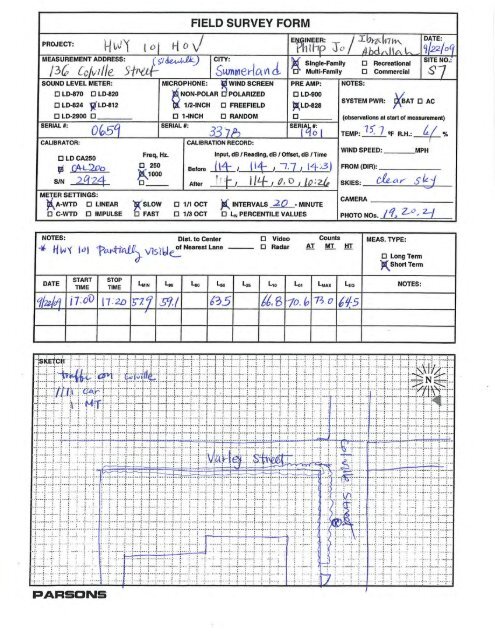 FIELD SURVEY FORM
PROJECT: HWY 101 HOV
ENGINEER: Philip Jo / Ibrahim Abdullah
DATE: 9/22/09
MEASUREMENT ADDRESS: (sidewalk)
136 Colville Street
CITY: Summerland
Single-Family □ Recreational
□ Multi-Family □ Commercial
SITE NO.: S7
SOUND LEVEL METER:
□ LD-870 □ LD-820
□ LD-824 LD-812
□ LD-2900 □
SERIAL #: 0659
MICROPHONE: WIND SCREEN
NON-POLAR □ POLARIZED
1/2-INCH □ FREEFIELD
□ 1-INCH □ RANDOM
SERIAL #: 3378
PRE AMP:
□ LD-900
LD-828
SERIAL #: 1901
NOTES:
SYSTEM PWR: BAT □ AC
(observations at start of measurement)
TEMP: 75.7 °F R.H.: 61 %
WIND SPEED: MPH
FROM (DIR):
SKIES: clear sky
CAMERA
PHOTO NOs. 19, 20, 21
CALIBRATOR:
□ LD CA250
CAL200
S/N 2924
Freq, Hz.
□ 250
1000
□
CALIBRATION RECORD:
Input, dB / Reading, dB / Offset, dB / Time
Before 114, 114, 7.7, 14:31
After 114, 114, 0.0, 10:26
METER SETTINGS:
A-WTD □ LINEAR SLOW □ 1/1 OCT INTERVALS 20 - MINUTE
□ C-WTD □ IMPULSE □ FAST □ 1/3 OCT □ LN PERCENTILE VALUES
NOTES:
* HWY 101 Partially visible
Dist. to Center
of Nearest Lane
□ Video
□ Radar
Counts
AT MT HT
MEAS. TYPE:
□ Long Term
Short Term
DATE START TIME STOP TIME LMIN L90 L50 L25 L10 L01 LMAX LEQ NOTES:
9/22/09 17:00 17:20 57.9 59.1 63.5 66.8 70.6 73.0 64.5
SKETCH
traffic on Colville
car
MT
N
Varley Street
Colville Street
PARSONS